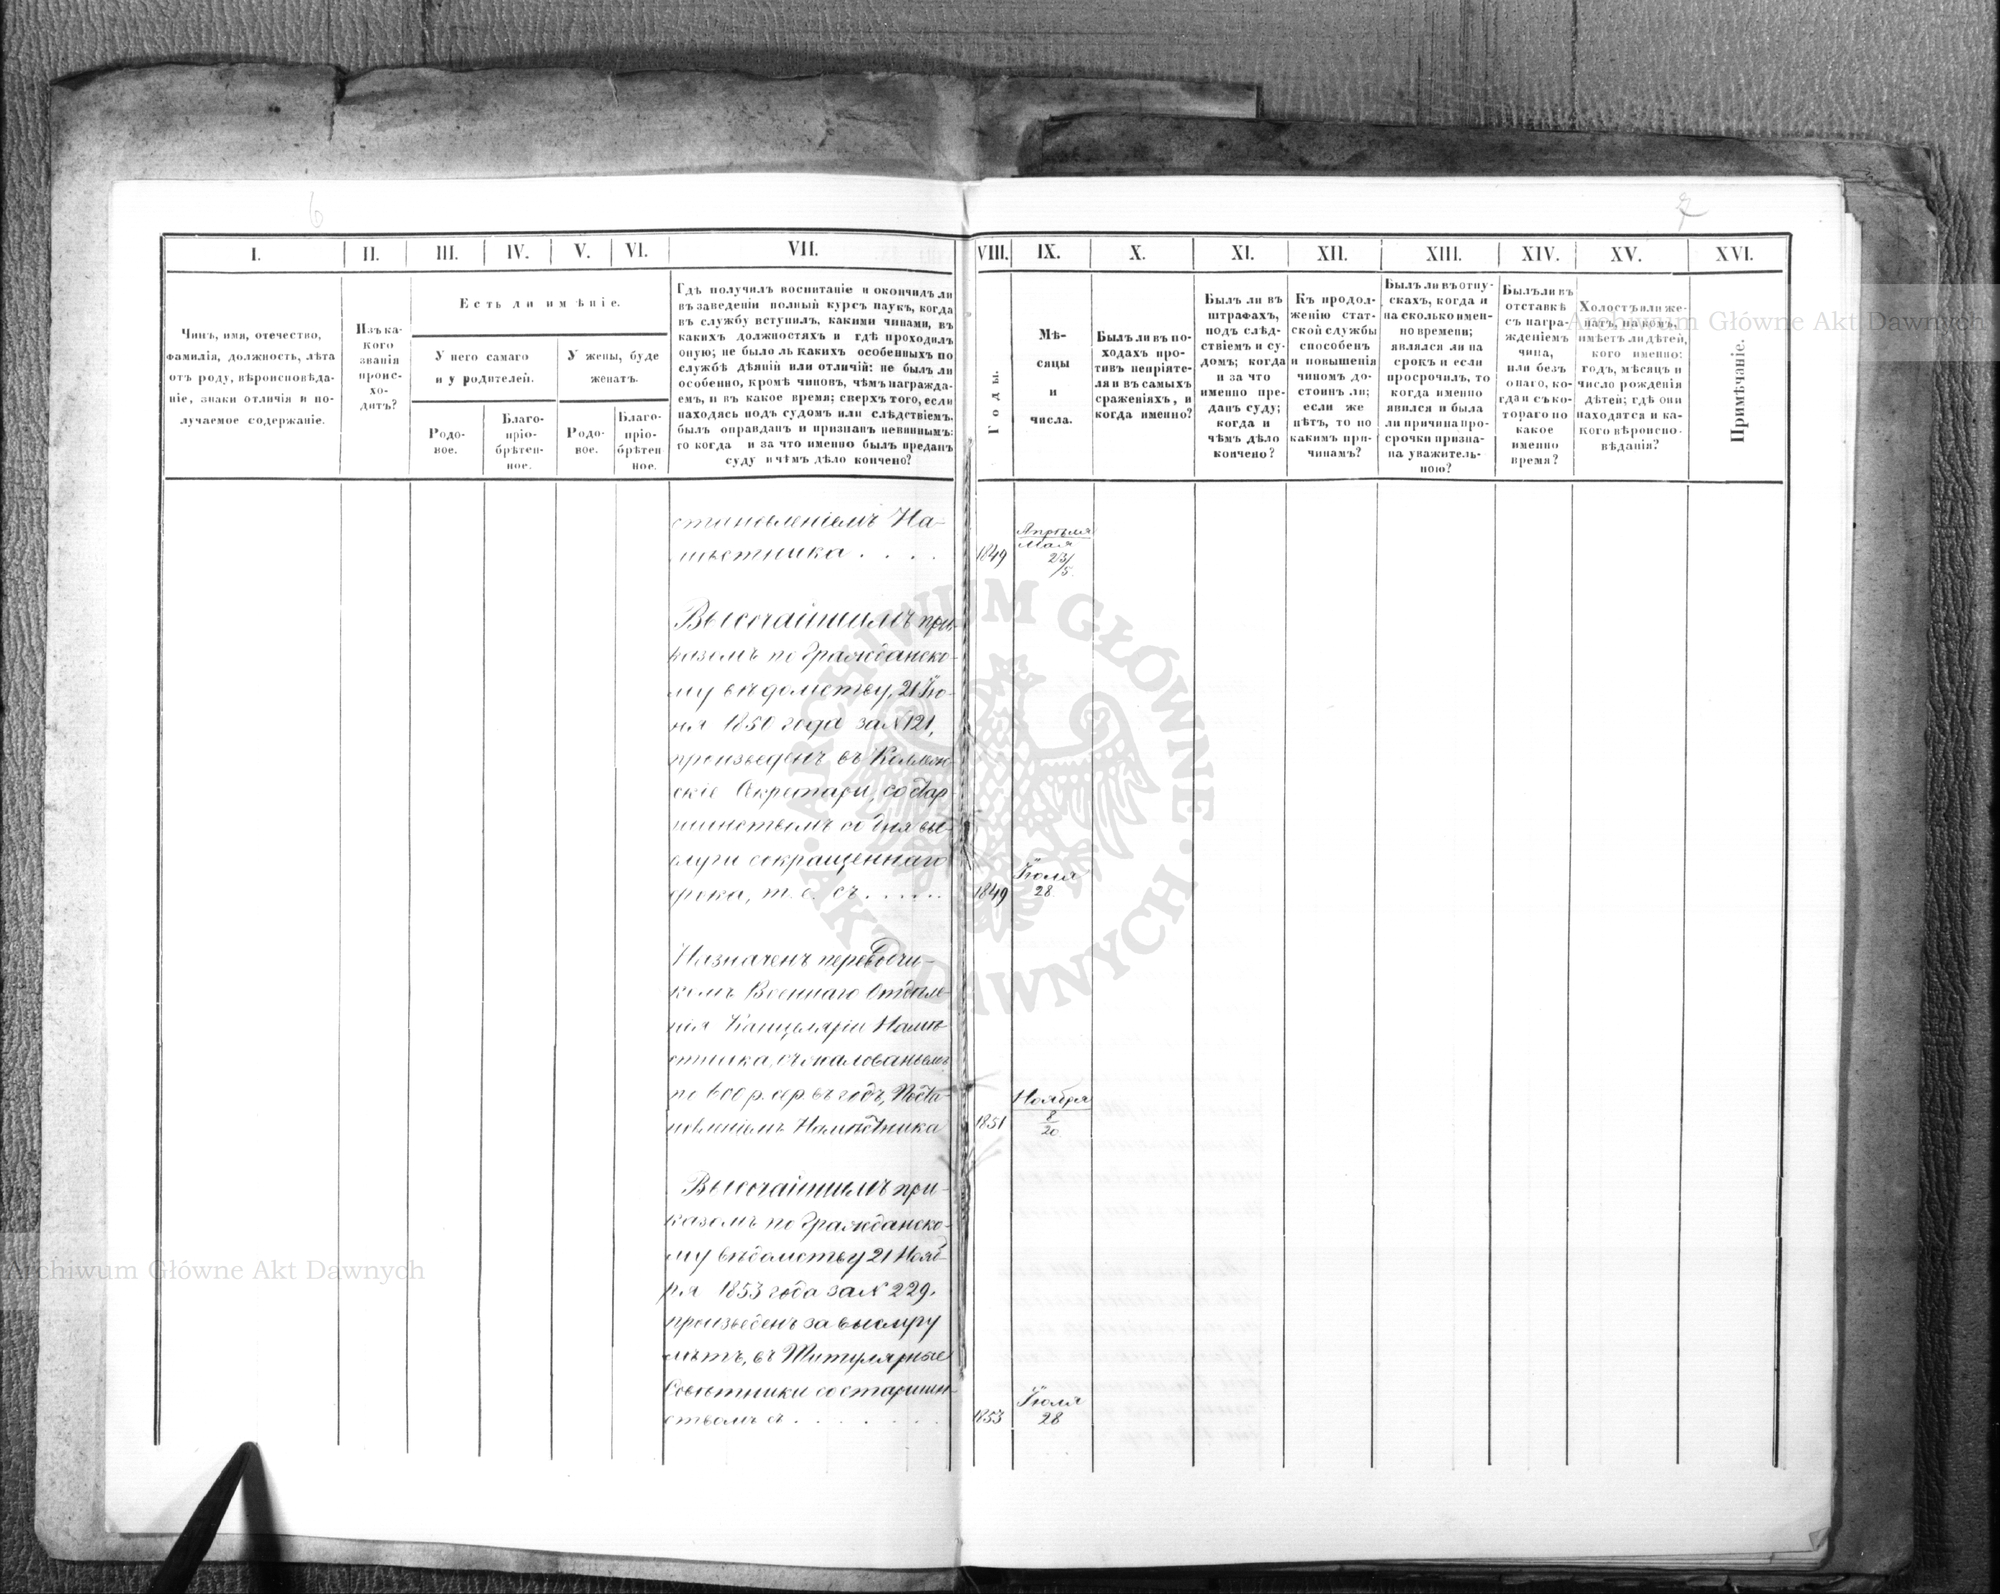 6
7
I.
II.
III.
IV.
V.
VI.
VII.
VIII.
IX.
X.
XI.
XII.
XIII.
XIV.
XV.
XVI.
Чинъ, имя, отечество,
фамилія, должность, лѣта
отъ роду, вѣроисповѣда-
ніе, знаки отличія и по-
лучаемое содержаніе.
Изъ ка-
кого
званія
проис-
хо-
дитъ?
Есть ли имѣніе.
У него самаго
и у родителей.
У жены, буде
женатъ.
Родо-
вое.
Благо-
пріо-
брѣтен-
ное.
Родо-
вое.
Благо-
пріо-
брѣтен
ное.
Гдѣ получилъ воспитаніе и окончилъ ли
въ заведеніи полный курсъ наукъ, когда
въ службу вступилъ, какими чинами, въ
какихъ должностяхъ и гдѣ проходилъ
оную; не было ль какихъ особенныхъ по
службѣ дѣяній или отличій: не былъ ли
особенно, кромѣ чиновъ, чѣмъ награжда-
емъ, и въ какое время; сверхъ того, если
находясь подъ судомъ или слѣдствіемъ.
былъ оправданъ и признанъ невиннымъ:
то когда и за что именно былъ преданъ
суду и чѣмъ дѣло кончено?
Годы.
Мѣ-
сяцы
и
числа.
Былъ ли въ по-
ходахъ про-
тивъ непріяте-
ля и въ самыхъ
сраженіяхъ, и
когда именно?
Былъ ли въ
штрафахъ,
подъ слѣд-
ствіемъ и су-
домъ; когда
и за что
именно пре-
данъ суду;
когда и
чѣмъ дѣло
кончено?
Къ продол-
женію стат-
ской службы
способенъ
и повышенія
чиномъ до-
стоинъ ли;
если же
нѣтъ, то по
какимъ при-
чинамъ?
Былъ ли въ отпу-
скахъ, когда и
на сколько имен-
но времени;
являлся ли на
срокъ и если
просрочилъ, то
когда именно
явился и была
ли причина про-
срочки призна-
на уважитель-
ною?
Былъ ли въ
отставкѣ
съ награ-
жденіемъ
чина,
или безъ
онаго, ко-
гда и съ ко-
тораго по
какое
именно
время?
Холостъ или же-
натъ, на комъ,
имѣетъ ли дѣтей,
кого именно:
годъ, мѣсяцъ и
число рожденія
дѣтей; гдѣ они
находятся и ка-
кого вѣроиспо-
вѣданія?
Примѣчаніе.
становленіемъ На-
мѣстника . . . .
1849
Апрѣля
Мая
23/
/5.
Высочайшимъ при-
казомъ по Гражданско-
му вѣдомству, 21 Ію-
ня 1850 года за N 121,
произведенъ въ Коллеж-
скіе Секретари, со стар-
шинствомъ со дня вы-
слуги сокращеннаго
срока, т. е. съ . . . . .
1849
Іюля
28
Назначенъ переводчи-
комъ Военнаго Отдѣле-
нія Канцеляріи Намѣ
стника, съ жалованьемъ
по 600 р. сер. въ годъ, Поста-
новленіемъ Намѣстника
1851
Ноября
8
20
Высочайшимъ при-
казомъ по Гражданско-
му вѣдомству 21 Нояб-
ря 1853 года за N 229.
произведенъ за выслугу
лѣтъ, въ Титулярные
Совѣтники со старшин-
ствомъ съ . . . . . .
1853
Іюля
28
Archiwum Główne Akt Dawnych
Archiwum Główne Akt Dawnych
ARCHIWUM GŁÓWNE AKT DAWNYCH